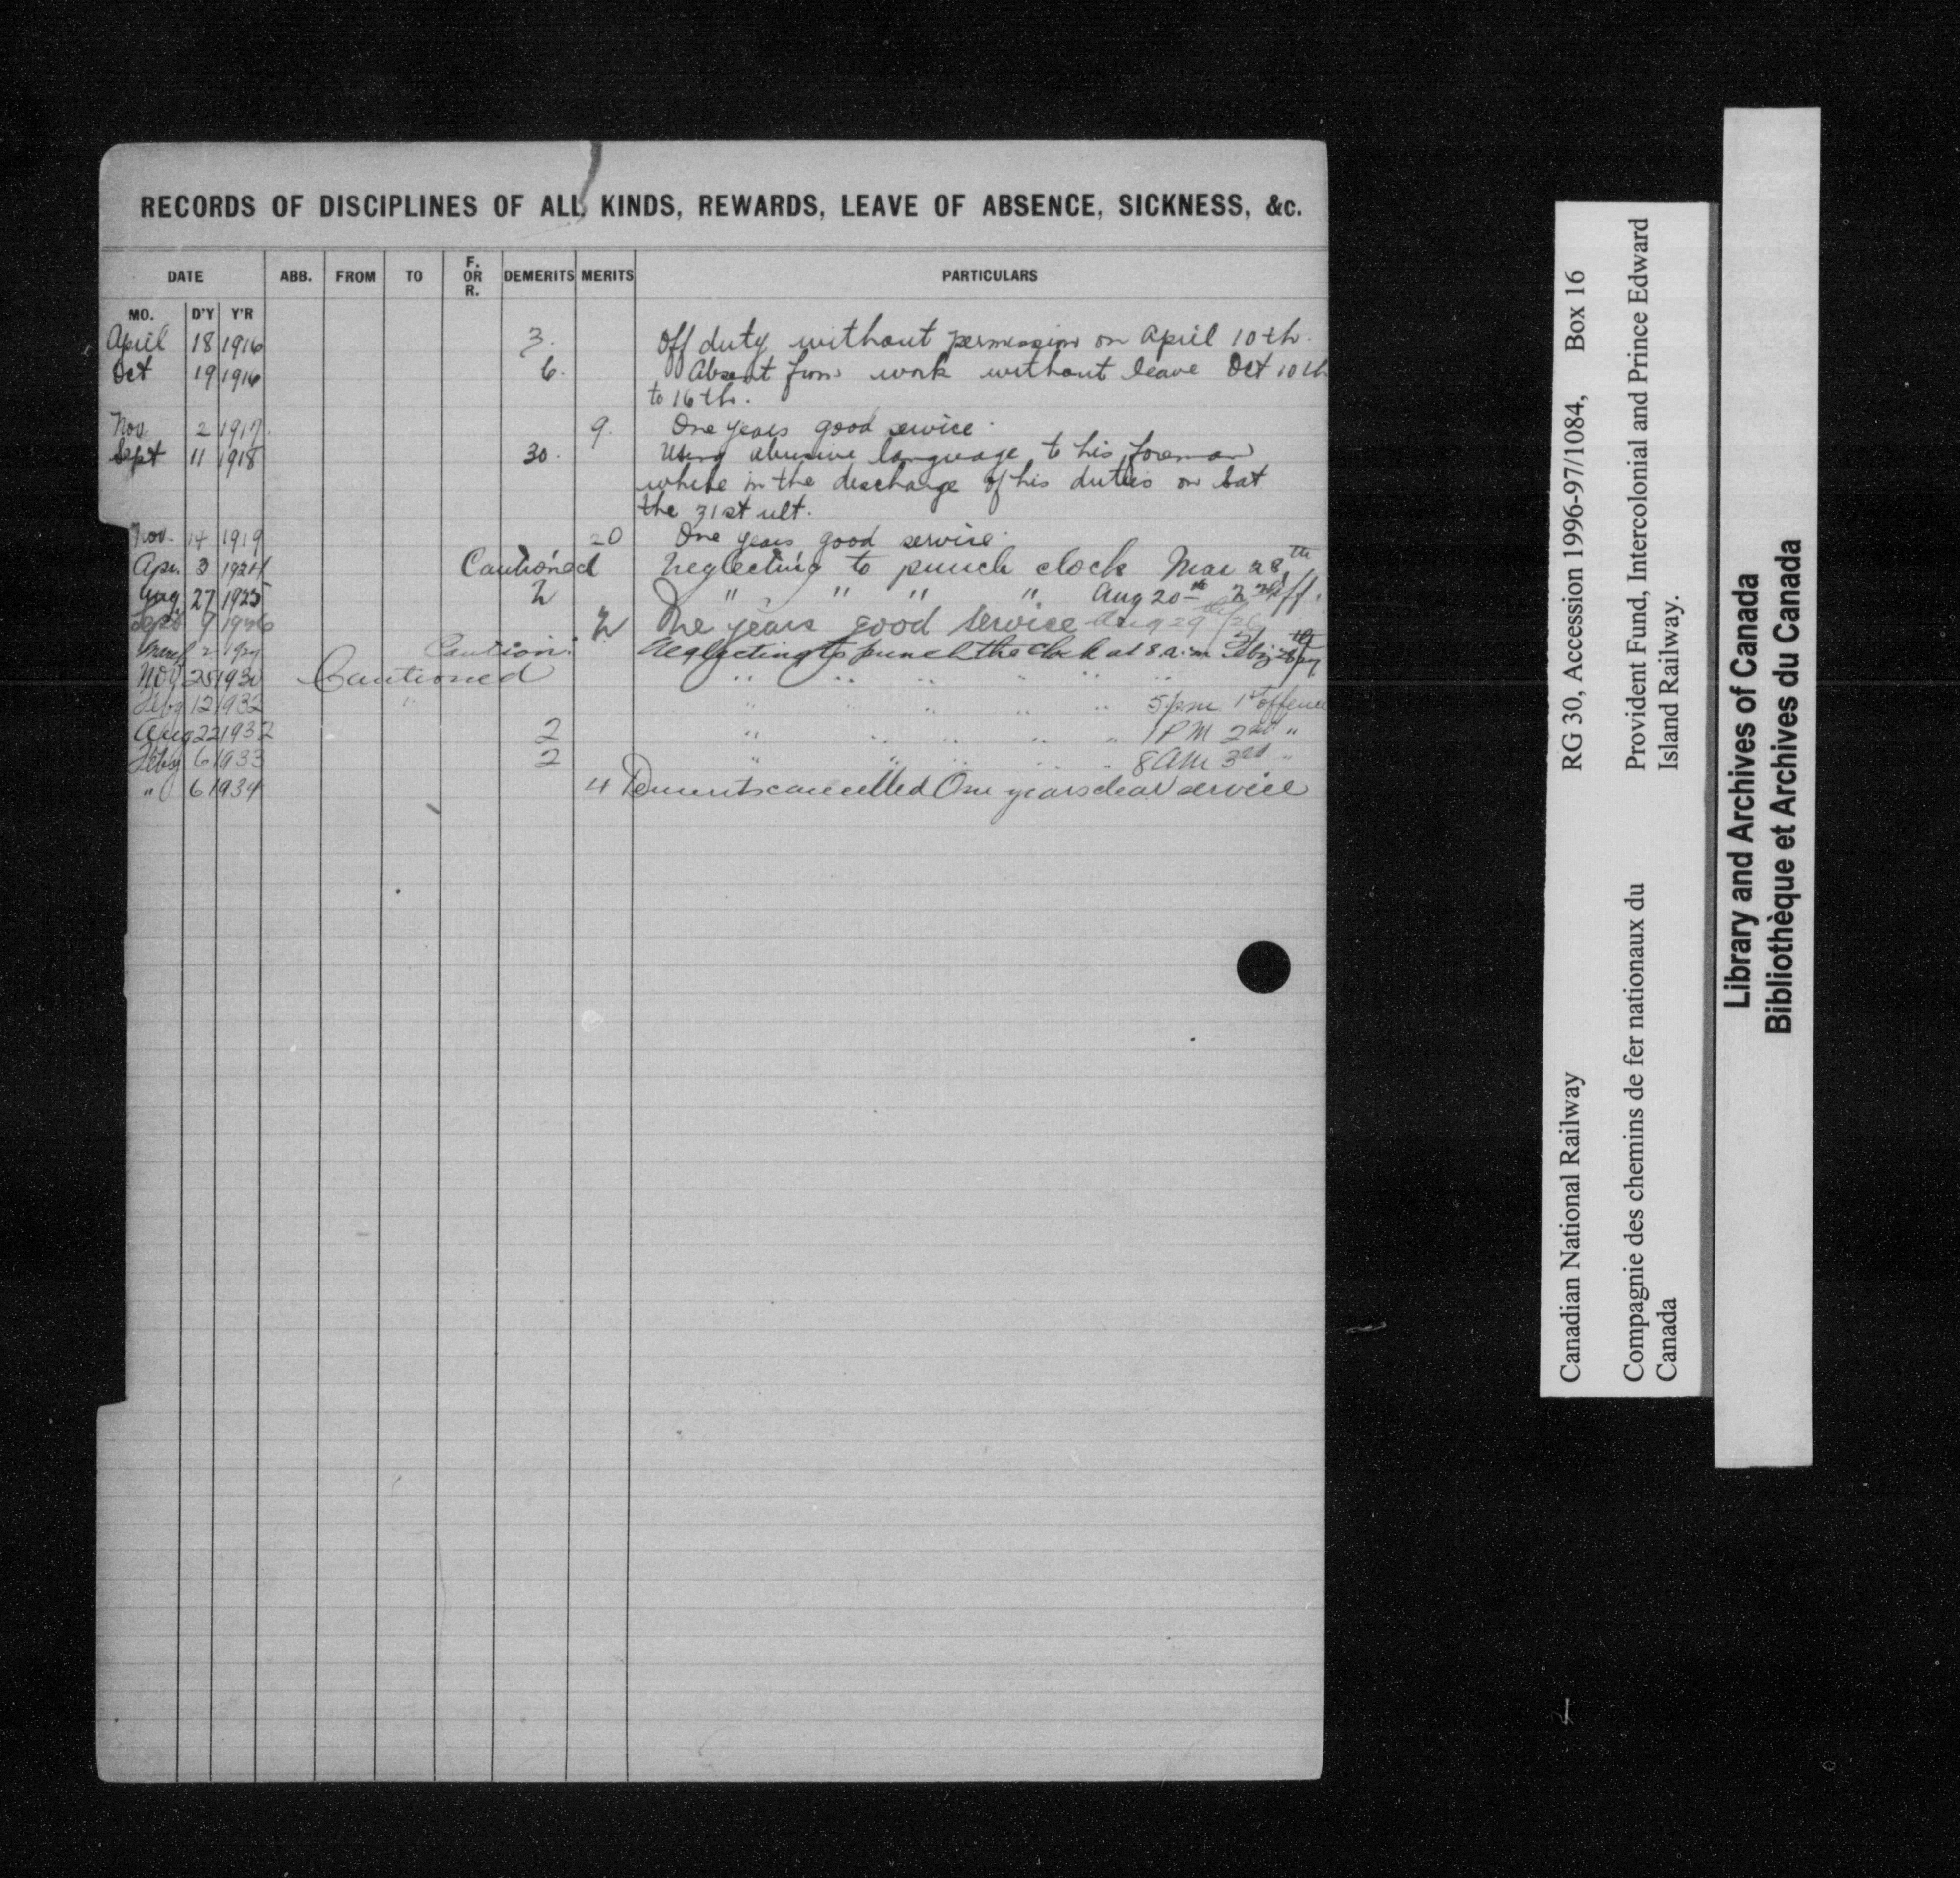 RECORDS OF DISCIPLINES OF ALL KINDS, REWARDS, LEAVE OF ABSENCE, SICKNESS, &c.
DATE ABB. FROM TO F. OR R. DEMERITS MERITS PARTICULARS
MO. D'Y Y'R
April 18 1916 3. Off duty without permission on April 10th.
Oct 19 1916 6. Absent from work without leave Oct 10th
to 16th.
Nov 2 1917. 9. One years good service.
Sept 11 1918 30. Using abusive language to his foreman
while in the discharge of his duties on Sat
the 31st ult.
Nov. 14 1919 20 One years good service.
Apr. 3 1924 Cautioned Neglecting to punch clock Mar 28th
Aug 27 1925 2 " " " " Aug 20th 2nd off.
Sept 9 1926 2 One years good service Aug 29th/26
March 2 1927 Caution. Neglecting to punch the clock at 8 a.m. Feby
Nov 25 1930 Cautioned " " " " " "
Feby 12 1932 " " " " " " 5 pm 1st offence
Aug 22 1932 2 " " " " " 1 PM 2nd "
Feby 6 1933 2 " " " " " 8 AM 3rd "
" 6 1934 4 Demerits cancelled One years clear service
Canadian National Railway RG 30, Accession 1996-97/1084, Box 16
Compagnie des chemins de fer nationaux du Provident Fund, Intercolonial and Prince Edward
Canada Island Railway.
Library and Archives of Canada
Bibliothèque et Archives du Canada